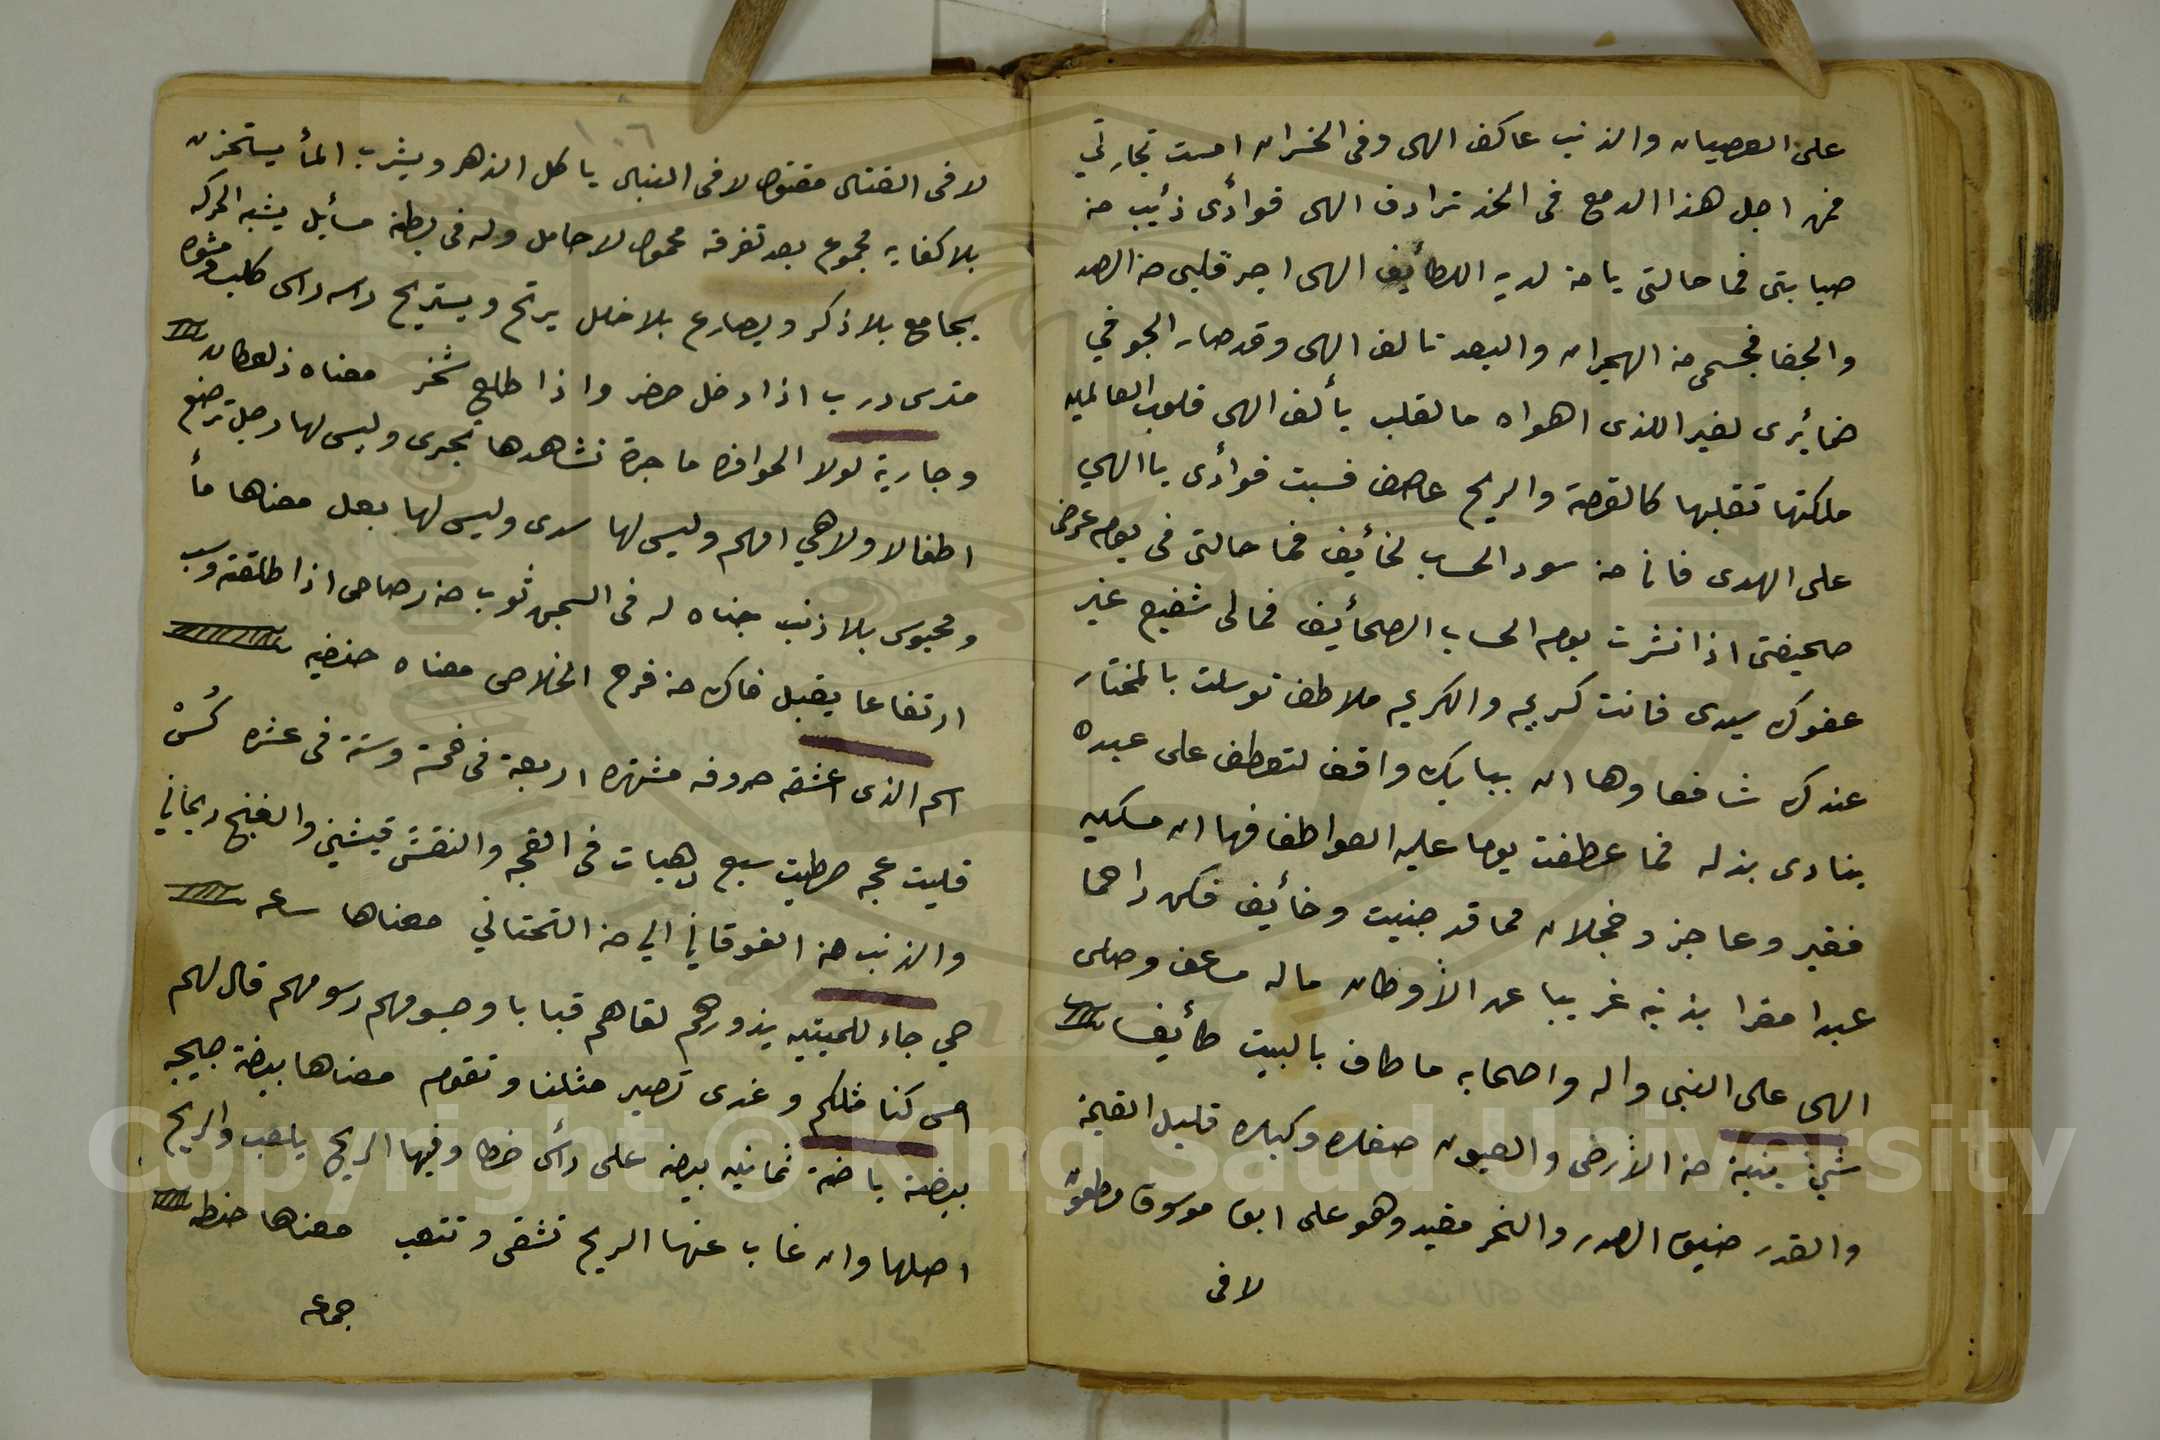 على العصيان والذنب عاكف الهى وفى الخسران امست تجارتي
فمن اجل هذا الدمع فى الخد ترادف الهى فوأدى ذأيب من
صبابتى فما حالتى يا من لديه اللطأيف الهى اجر قلبى من الصد
والجفا فجسمى من الهجران والبعد تالف الهى وقد صار الجو في
ضمأيرى لغير اللذى اهواه ما لقلب يألف الهى قلوب العالمين
ملكتها تقلبها كالقرصة والريح عاصف فسبت فوأدى يا الهي
على الهدى فانا من سود الحسب لخأيف فما حالتى فى يوم عرضى
صحيفتى اذا نشرت يوم الحساب الصحأيف فمالى شفيع غير
عفوك سيدى فانت كريم والكريم ملاطف توسلت بالمختار
عندك شافعا وها ان ببابك واقف لتعطف على عبده
ينادى بذله فما عطفت يوما عليه العواطف فها ان مسكين
فقير وعاجز وخجلان مما قد جنيت وخأيف فكن راحما
عبدا مقرا بذنبه غريبا عن الأوطان ماله مسعف وصلى
الهى على النبى واله واصحابه ما طاف بالبيت طأيف
شئ ينبة من الأرض والعيون صغاره وكباره قليل القيمة
والقدر ضيق الصدر والنحر مقيد وهو على ابق موسوق مطعون
لا فى
١٠٦
لا فى القتال مقتول لا فى النبال ياكل الزهر ويشرب المأ يستخزن
بلا كفايه مجموع بعد تفرقه محمول لا حامل وله فى بطنه مسأيل يشبه الحركه
يجامع بلا ذكر ويصارع بلا خلل يرتح ويستريح راسه راس كلب ومشوه
مترس درب اذا دخل حضر واذا طلع شخر معناه ذلعطان
وجارية لولا الحوافره ما جرة تشاهدها تجرى وليس لها رجل ترضع
اطفالا ولا هي امهم وليس لها سدى وليس لها بعل معناها مأ
ومحبوس بلا ذنب جناه له فى السجن ثوب من رصاص اذا طلقته وسب
ارتفاعا يقبل فاك من فرح الخلاص معناه حنفيه
اسم الذى اعشقه حروفه مشتهره اربعة فى خمة وستة فى عشره كُسْ
قليت عجه حطيت سبع دهيات فى القجه والنقش قيشني والفنج ريحاني
والذنب من الفوقاني الي من التحتاني معناها ساعه
حي جاء للميتين يزورهم لقاهم قبابا وجسومهم رسومهم قال لهم
امس كنا مثلكم وغدى تصير مثلنا وتقوم معناها بيضة صيجه
بيضة باضة ثمانيه بيضه على رأس خطا وفيها الريح يلعب والريح
اصلها وان غاب عنها الريح تشقى وتتعب معناها حنطه
جماعه
Copyright © King Saud University